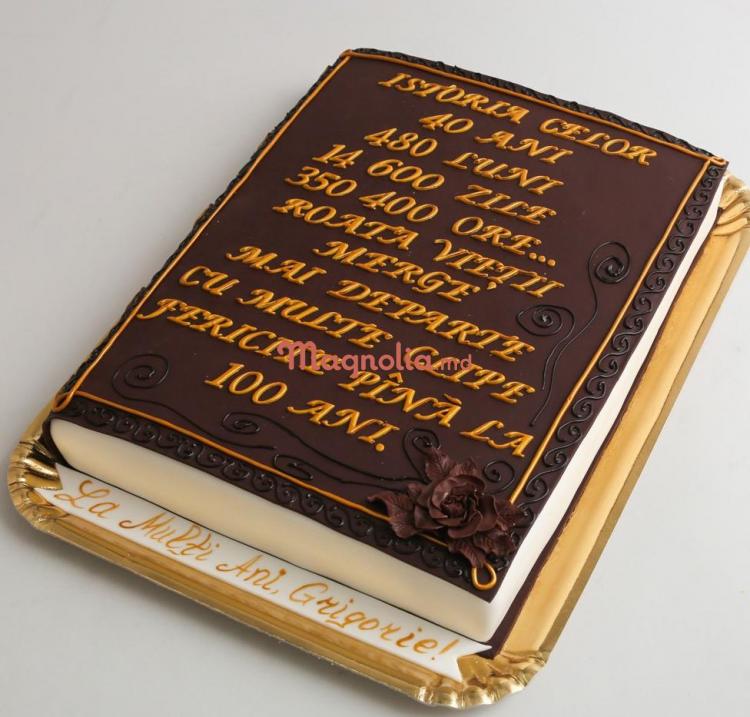 ISTORIA CELOR
40 ANI
480 LUNI
14 600 ZILE
350 400 ORE...
ROATA VIEȚII
MERGE
MAI DEPARTE
CU MULTE CLIPE
FERICITE PÎNĂ LA
100 ANI.
Magnolia.md
La Mulți Ani, Grigorie!